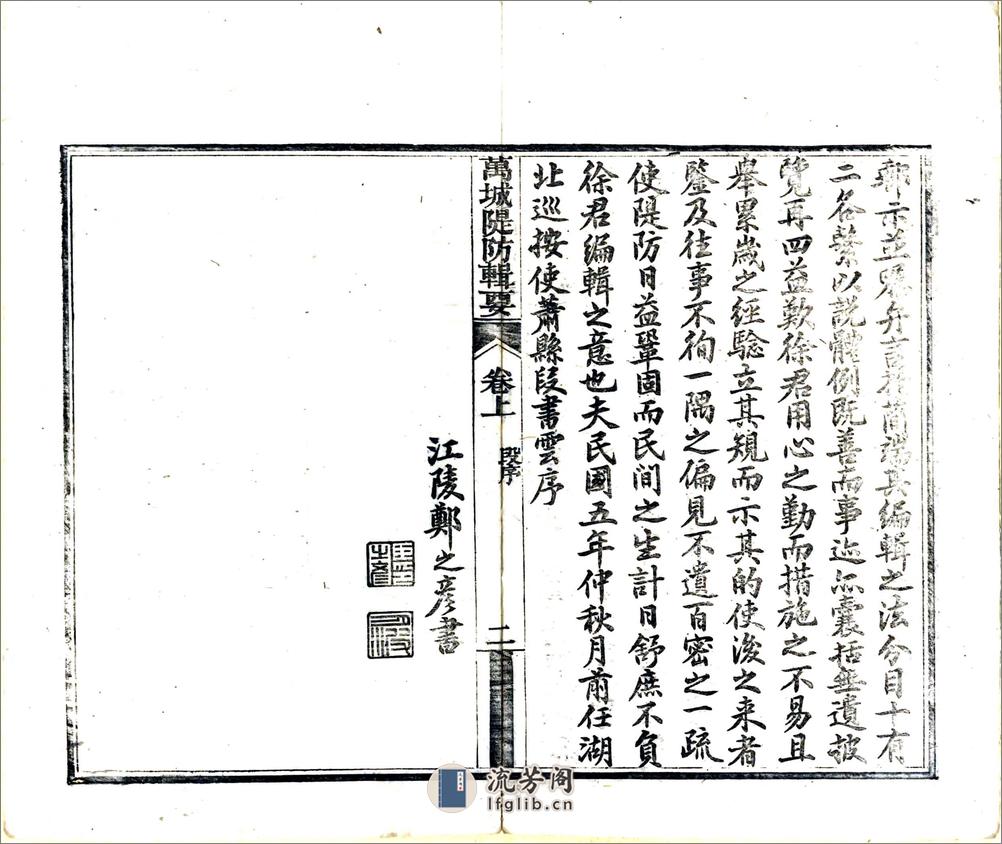 郵示並畀弁言於簡端其編輯之法分目十有
二各繫以說體例既善而事迹亦囊括無遺披
覽再四益歎徐君用心之勤而措施之不易且
舉累歲之經驗立其規而示其的使後之来者
鑒及往事不徇一隅之偏見不遺百密之一疏
使隄防日益鞏固而民間之生計日舒庶不負
徐君編輯之意也夫民國五年仲秋月前任湖
北巡按使蕭縣段書雲序
萬城隄防輯要
卷上
段序
二
江陵鄭之彥書
流芳阁
lfglib.cn